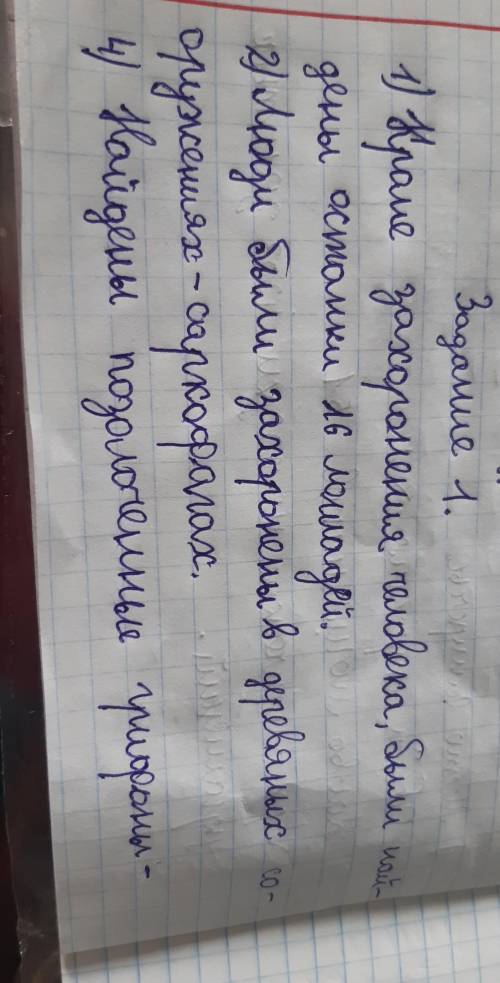 Задание 1.
1) Кроме захоронения человека, были най-
дены останки 16 лошадей.
2) Люди были захоронены в деревяных со-
оружениях - саркофагах.
4) Найдены позолоченные грифоны-